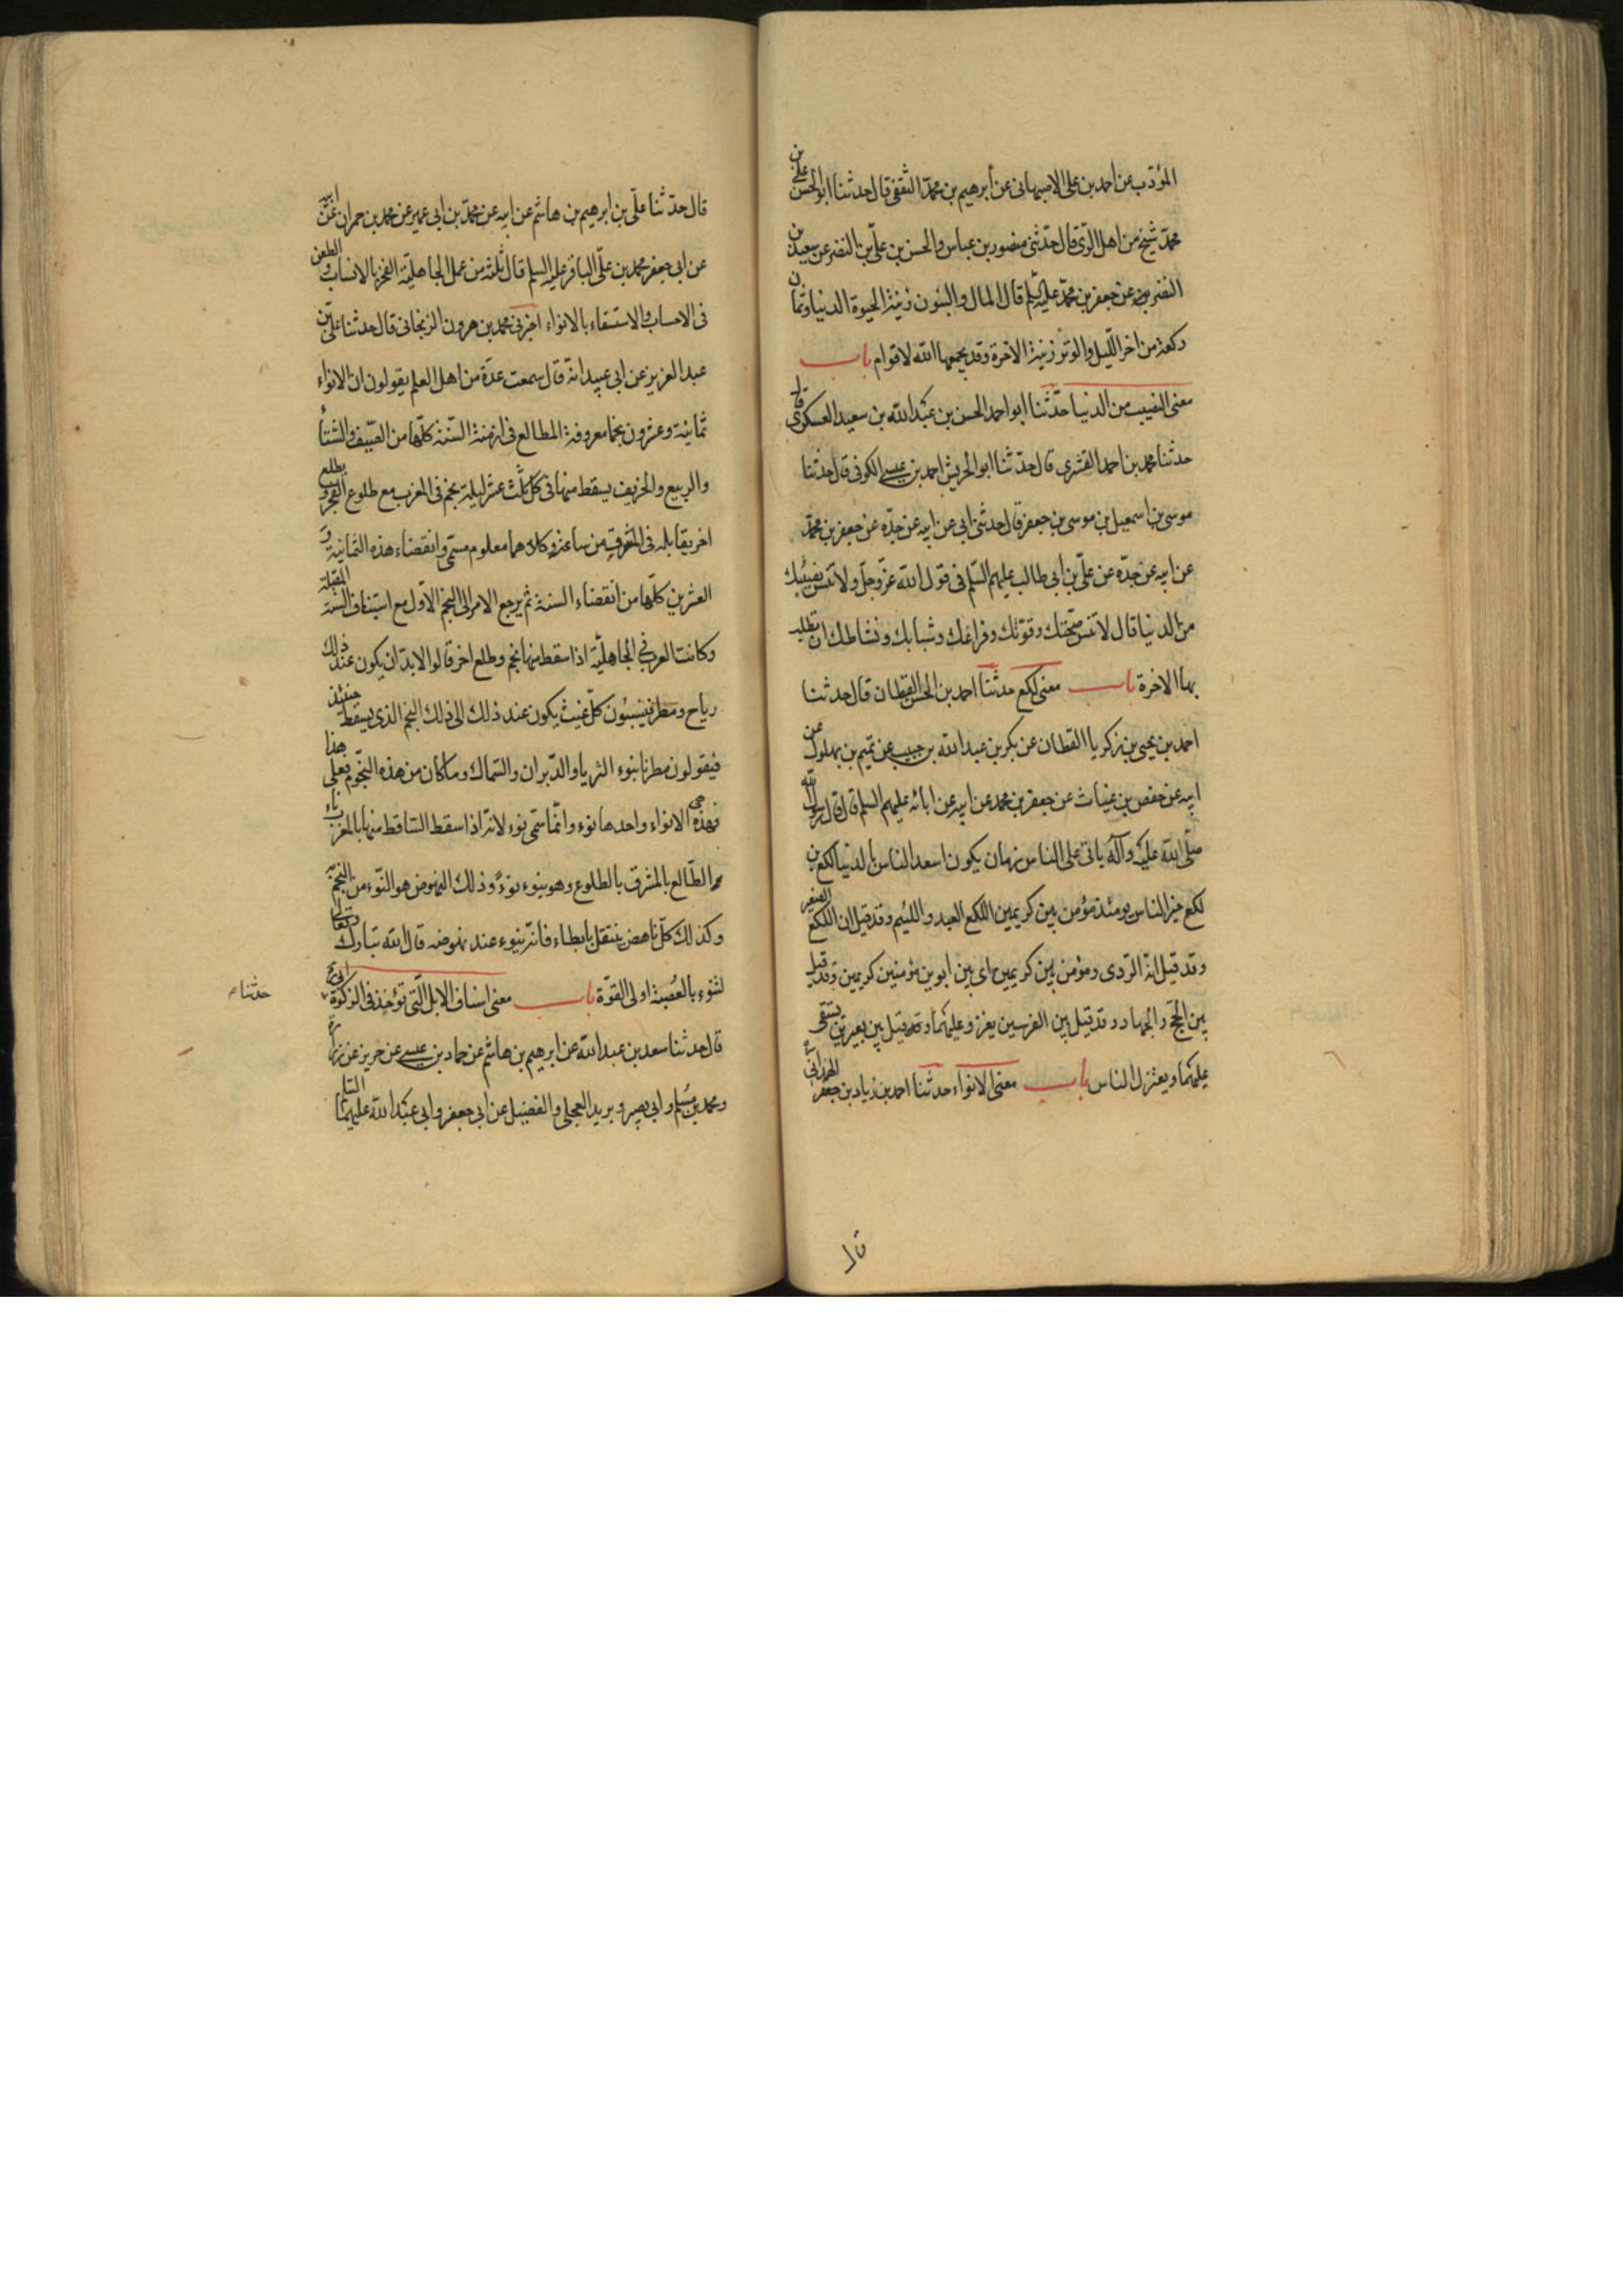 المؤدب عن احمد بن علی الاصبهانی عن أبرهیم بن محمّد الثقفی قال حدثنا ابو الحسن علی بن
محمد شیخ من اهل الری قال حدّثنی منصور بن عباس والحسن بن علیّ بن النضر عن سعید بن
النضر عن جعفر بن محمّد علیه السّلم قال المال والبنون زینة الحیوة الدنیا وثمان
رکعة من اخر اللّیل والوتر زینة الاخرة وقد یجمعها الله لاقوام باب
معنی النصیب من الدنیا حدّثنا ابو احمد الحسن بن عبد الله بن سعید العسکری قال
حدثنا محمد بن احمد القشری قال حدّثنا ابو الحریش احمد بن عیسی الکوفی قال حدثنا
موسی بن اسمعیل بن موسی بن جعفر قال حدثنی ابی عن ابیه عن جدّه عن جعفر بن محمّد
عن ابیه عن جدّه عن علیّ بن ابی طالب علیهم السّلم فی قول الله عزّ وجلّ ولا تنس نصیبک
من الدنیا قال لا تنس صحّتک وقوّتک وفراغک وشبابک ونشاطک ان تطلب
بها الاخرة باب معنی لکع حدثنا احمد بن الحسن القطان قال حدثنا
احمد بن یحیی بن زکریا القطان عن بکر بن عبد الله بن حبیب عن تمیم بن بهلول عن
ابیه عن حفص بن غیاث عن جعفر بن محمد عن ابیه عن ابائه علیهم السلم قال قال رسول الله
صلّی الله علیه وآله یاتی علی الناس زمان یکون اسعد الناس بالدنیا لکع بن
لکع خیر الناس یومئذ مؤمن بین کریمین اللکع العبد واللئیم وقد قیل ان اللکع الصغیر
وقد قیل انه الرّدی ومؤمن بین کریمین ای بین ابوین مؤمنین کریمین وقد قیل
بین الحجّ والجهاد وقد قیل بین الفرسین یغزو علیهما وقد قیل بین بعیرین یستقی
علیهما ویعتزل الناس باب معنی الانواء حدثنا احمد بن زیاد بن جعفر الهمدانی
قال
قال حدّثنا علیّ بن ابرهیم بن هاشم عن ابیه عن محمّد بن ابی عمیر عن محمد بن حمران عن ابیه
عن ابی جعفر محمد بن علیّ الباقر علیه السلم قال ثلثة من عمل الجاهلیّة الفخر بالانساب والطعن
فی الاحساب والاستسقاء بالانواء اخبرنی محمد بن هرون الزنجانی قال حدثنا علیّ بن
عبد العزیز عن ابی عبید انه قال سمعت عدة من اهل العلم یقولون ان الانواء
ثمانیة وعشرون نجما معروفة المطالع فی ازمنة السّنة کلّها من الصّیف والشتأ
والربیع والخریف یسقط منها فی کل ثلث عشر لیلة نجم فی المغرب مع طلوع الفجر ویطلع
اخر یقابله فی المشرق من ساعته وکلاهما معلوم مسمّی وانقضاء هذه الثمانیة و
العشرین کلّها من انقضاء السنة ثم یرجع الامر الی النجم الاوّل مع استیناف السّنة المقبلة
وکانت العرب فی الجاهلیّة اذا سقط منها نجم وطلع اخر قالوا لابدّ ان یکون عند ذلک
ریاح ومطر فینسبون کلّ غیث یکون عند ذلک الی ذلک النجم الذی یسقط حینئذ
فیقولون مطرنا بنوء الثریا والدّبران والسّماک وماکان من هذه النّجوم فعلی هذا
فهذه هی الانواء واحدها نوء وانّما سمّی نوء لانّه اذا سقط السّاقط منها بالمغرب ناء
الطّالع بالمشرق بالطلوع وهو ینوء نوءً وذلک النهوض هو النّوء من النجم به
وکذلک کلّ ناهض ینتقل بابطاء فانّه ینوء عند نهوضه قال الله تبارک وتعالی
لتنوء بالعُصبة اولی القوّة باب معنی اسنان الابل الّتی تؤخذ فی الزکوة ابی ره
حدثنا
قال حدثنا سعد بن عبد الله عن ابرهیم بن هاشم عن حماد بن عیسی عن حریز عن زرارة
ومحمد بن مسلم وابی بصیر وبرید العجلی والفضیل عن ابی جعفر وابی عبد الله علیهما السلم